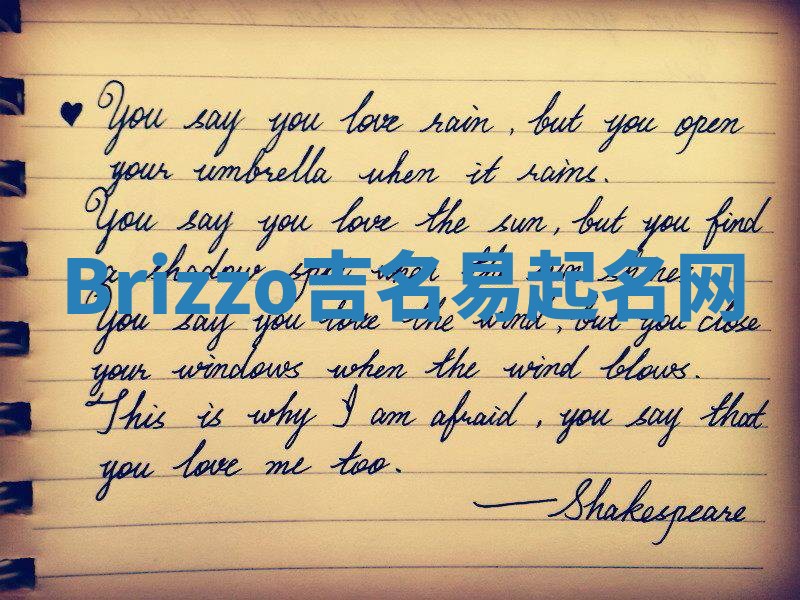 ♥ You say you love rain, but you open
your umbrella when it rains.
You say you love the sun, but you find
a shadow spot when the sun shines.
Brizzo吉名易起名网
You say you love the wind, but you close
your windows when the wind blows.
This is why I am afraid, you say that
you love me too.
—Shakespeare